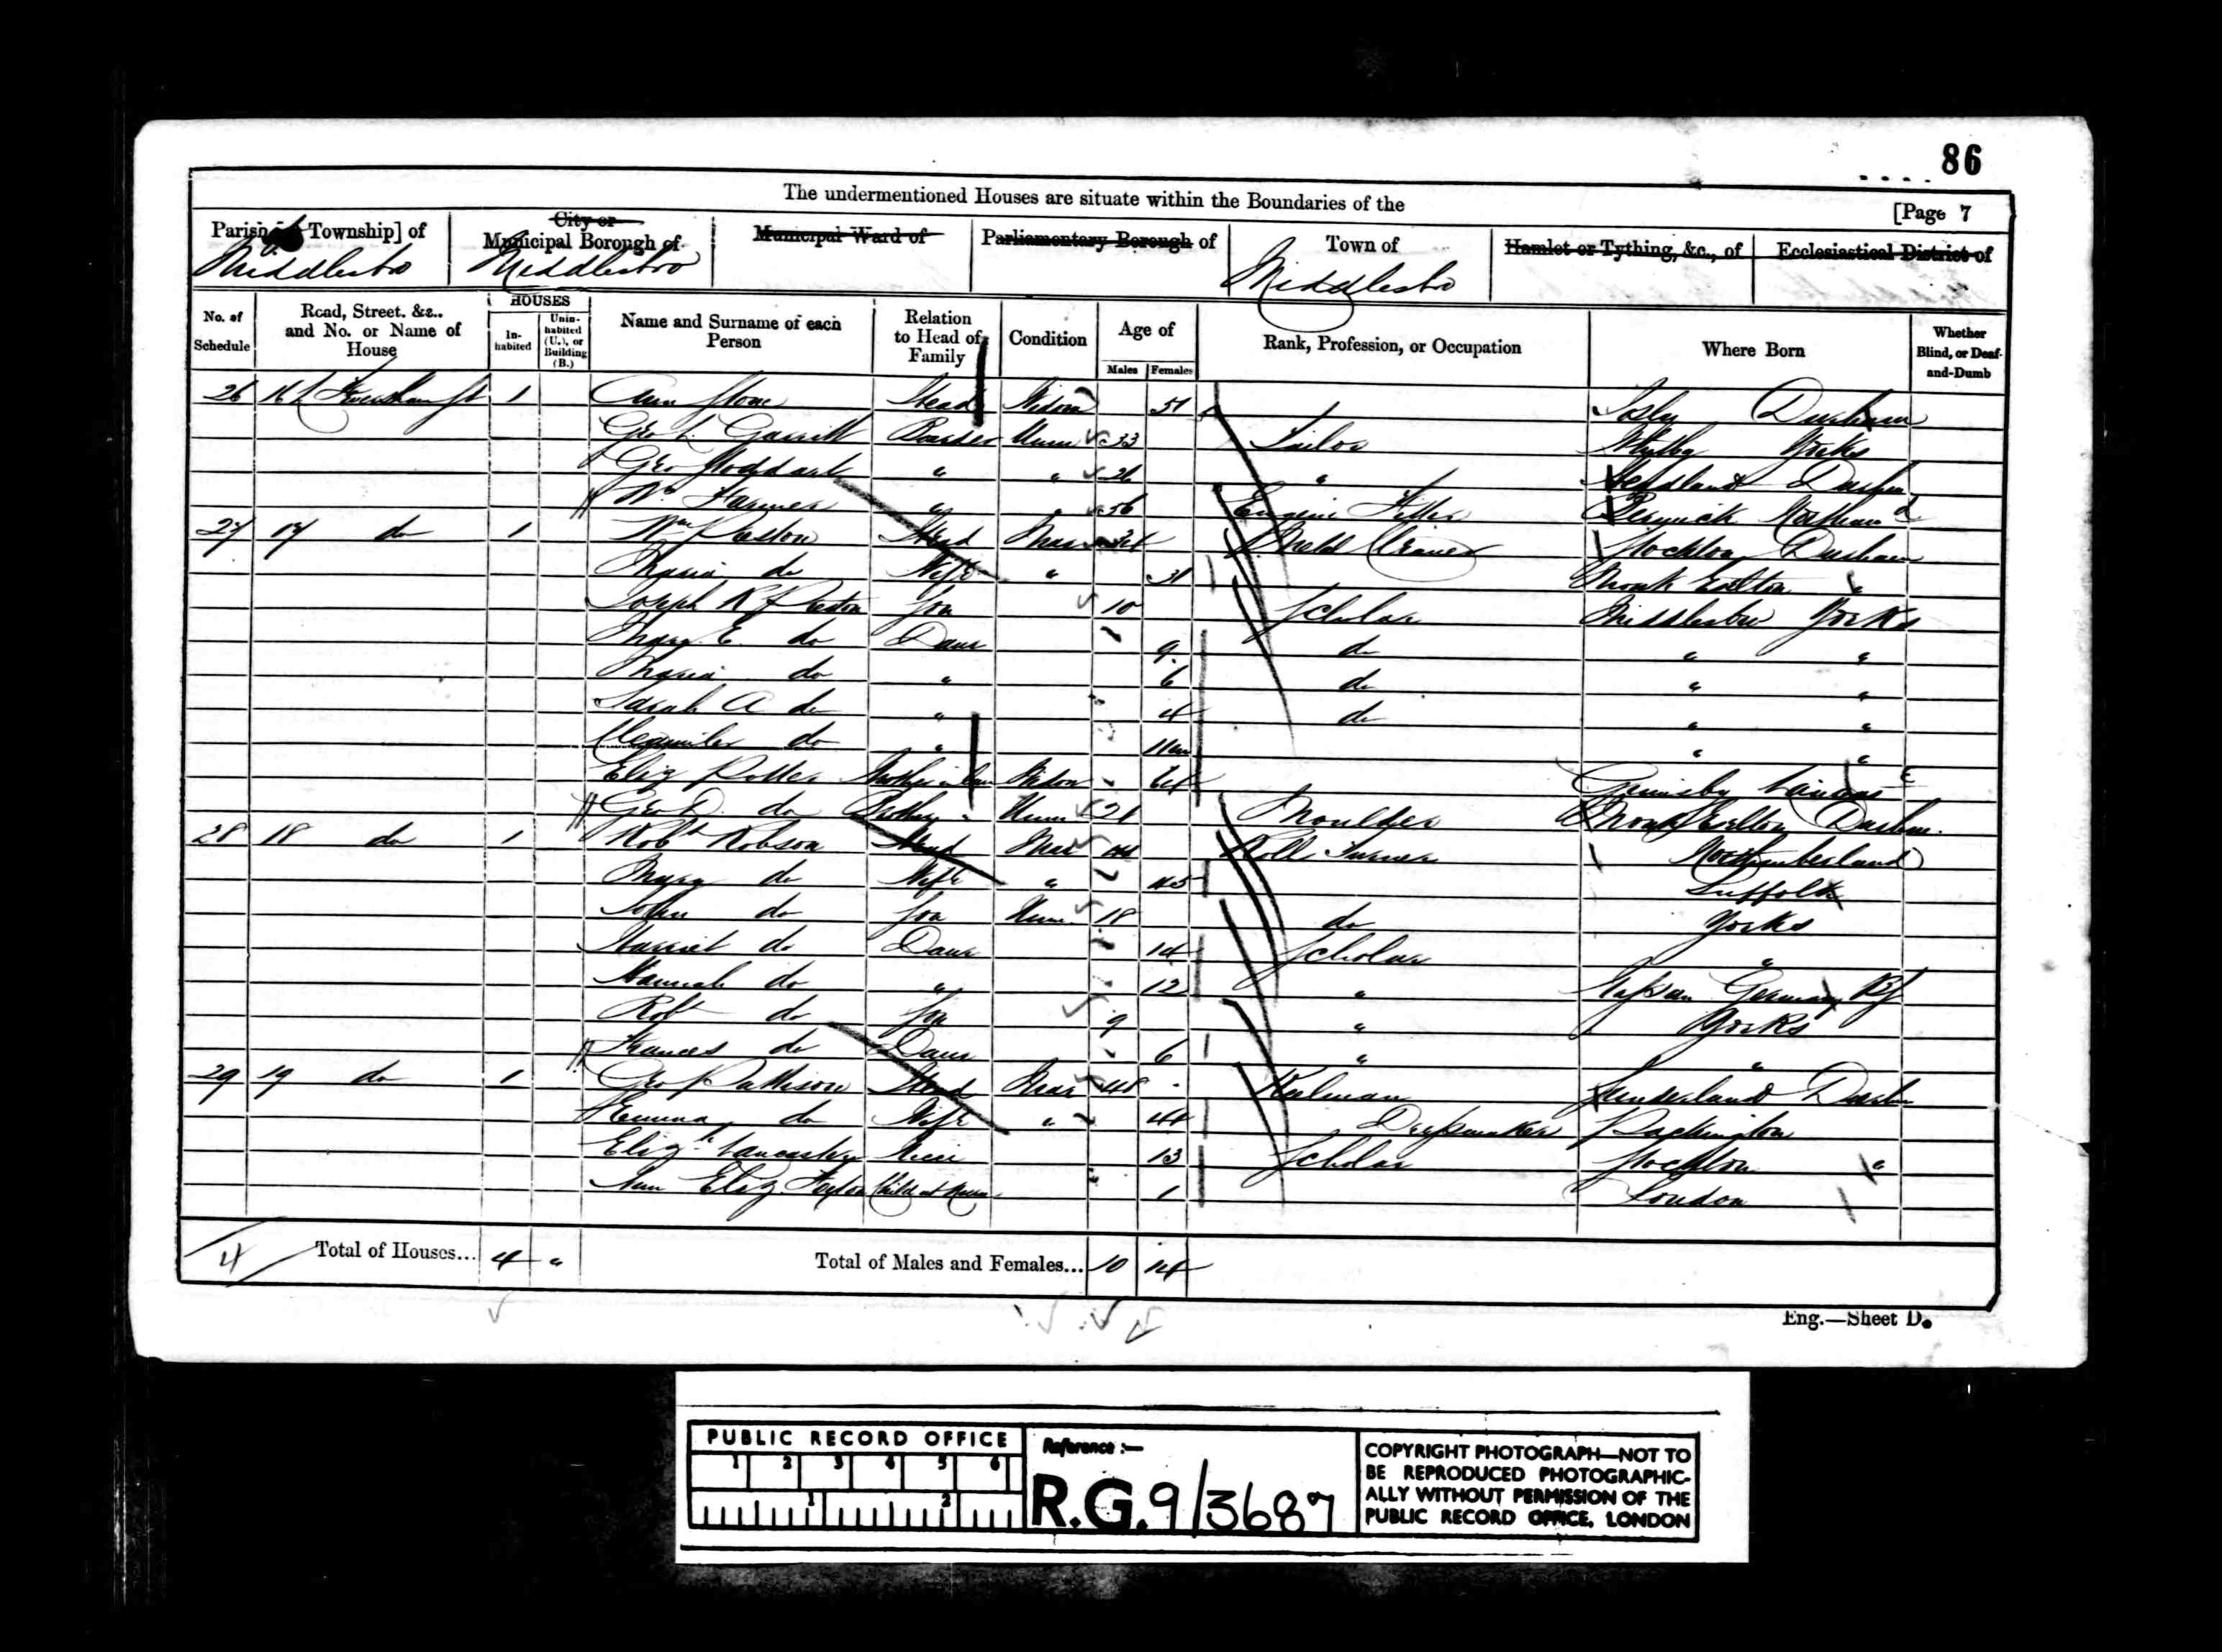 86
The undermentioned Houses are situate within the Boundaries of the
[Page 7
Parish Township] of City or Municipal Borough of Municipal Ward of Parliamentary Borough of Town of Hamlet or Tything, &c., of Ecclesiastical District of
Middlesbro Middlesbro Middlesbro
No. of Schedule Road, Street, &c., and No. or Name of House HOUSES Inhabited Uninhabited (U.), or Building (B.) Name and Surname of each Person Relation to Head of Family Condition Age of Males Females Rank, Profession, or Occupation Where Born Whether Blind, or Deaf-and-Dumb
26 16 St 1 Ann Head Widow 51 Durham
Geo Boarder Unm 33 Yorks
Geo Stoddart " " 26 "
Wm Farmer " " 56 Engine Fitter Berwick
27 17 do 1 Wm Preston Head Mar Stockton Durham
Maria do Wife " 31 Monk "
Joseph R Preston Son 10 Scholar Middlesbro Yorks
Mary E. do Daur 9 do " "
Maria do " 6 do " "
Sarah A do " 4 do " "
do " " "
Eliz Potter Mother in law Widow 64 Grimsby
Geo D. do Brother " Unm 21 Moulder Monk Durhm.
28 18 do 1 Robt Robson Head Mar 44 Roll Turner Northumberland
Mary do Wife " 45 Suffolk
John do Son Unm 18 do Yorks
Harriet do Daur 14 Scholar "
Hannah do " 12 " Germany
Robt do Son 9 " Yorks
Frances do Daur 6 " "
29 19 do 1 Geo Pattison Head Mar 48 Keelman Sunderland
Emma do Wife " 44 Dressmaker
Elizh Lancaster Niece 13 Scholar Stockton "
Ann Eliz Child at Nurse 1 London
4 Total of Houses... 4 " Total of Males and Females... 10 14
Eng.—Sheet D.
PUBLIC RECORD OFFICE
1 2 3 4 5 6
1 2
Reference :—
R.G. 9/3687
COPYRIGHT PHOTOGRAPH—NOT TO
BE REPRODUCED PHOTOGRAPHIC-
ALLY WITHOUT PERMISSION OF THE
PUBLIC RECORD OFFICE, LONDON